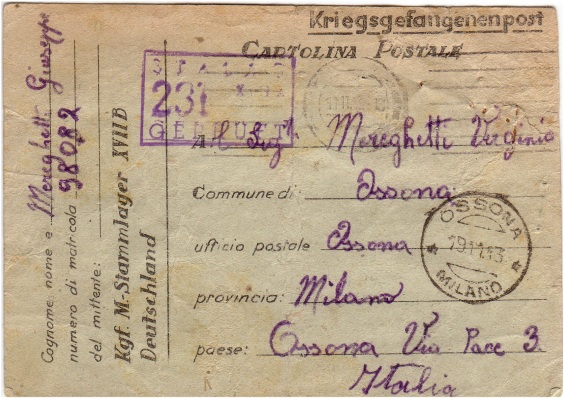 Kriegsgefangenenpost
CARTOLINA POSTALE
231
GEPRÜFT
A l Sig.
Mereghetti Verginio
Commune di: Ossona
ufficio postale Ossona
provincia: Milano
paese: Ossona Via Pace 3
Italia
OSSONA
19.11.43
MILANO
Cognome nome e Mereghetti Giuseppe
numero di matricola 98082
del mittente:
Kgf. M-Stammlager XVII B
Deutschland